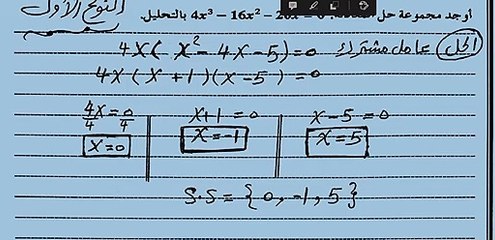 النوع الأول
أوجد مجموعة حل 4x³ − 16x² − 20x = 0 بالتحليل.
الحل عامل مشترك 4x(x²-4x-5)=0
4x(x+1)(x-5)=0
4x=0 x+1=0 x-5=0
4 4 x=-1 x=5
x=0
S.S={0,-1,5}